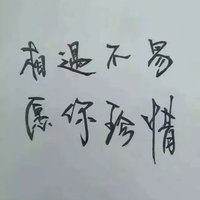 相遇不易
愿你珍惜